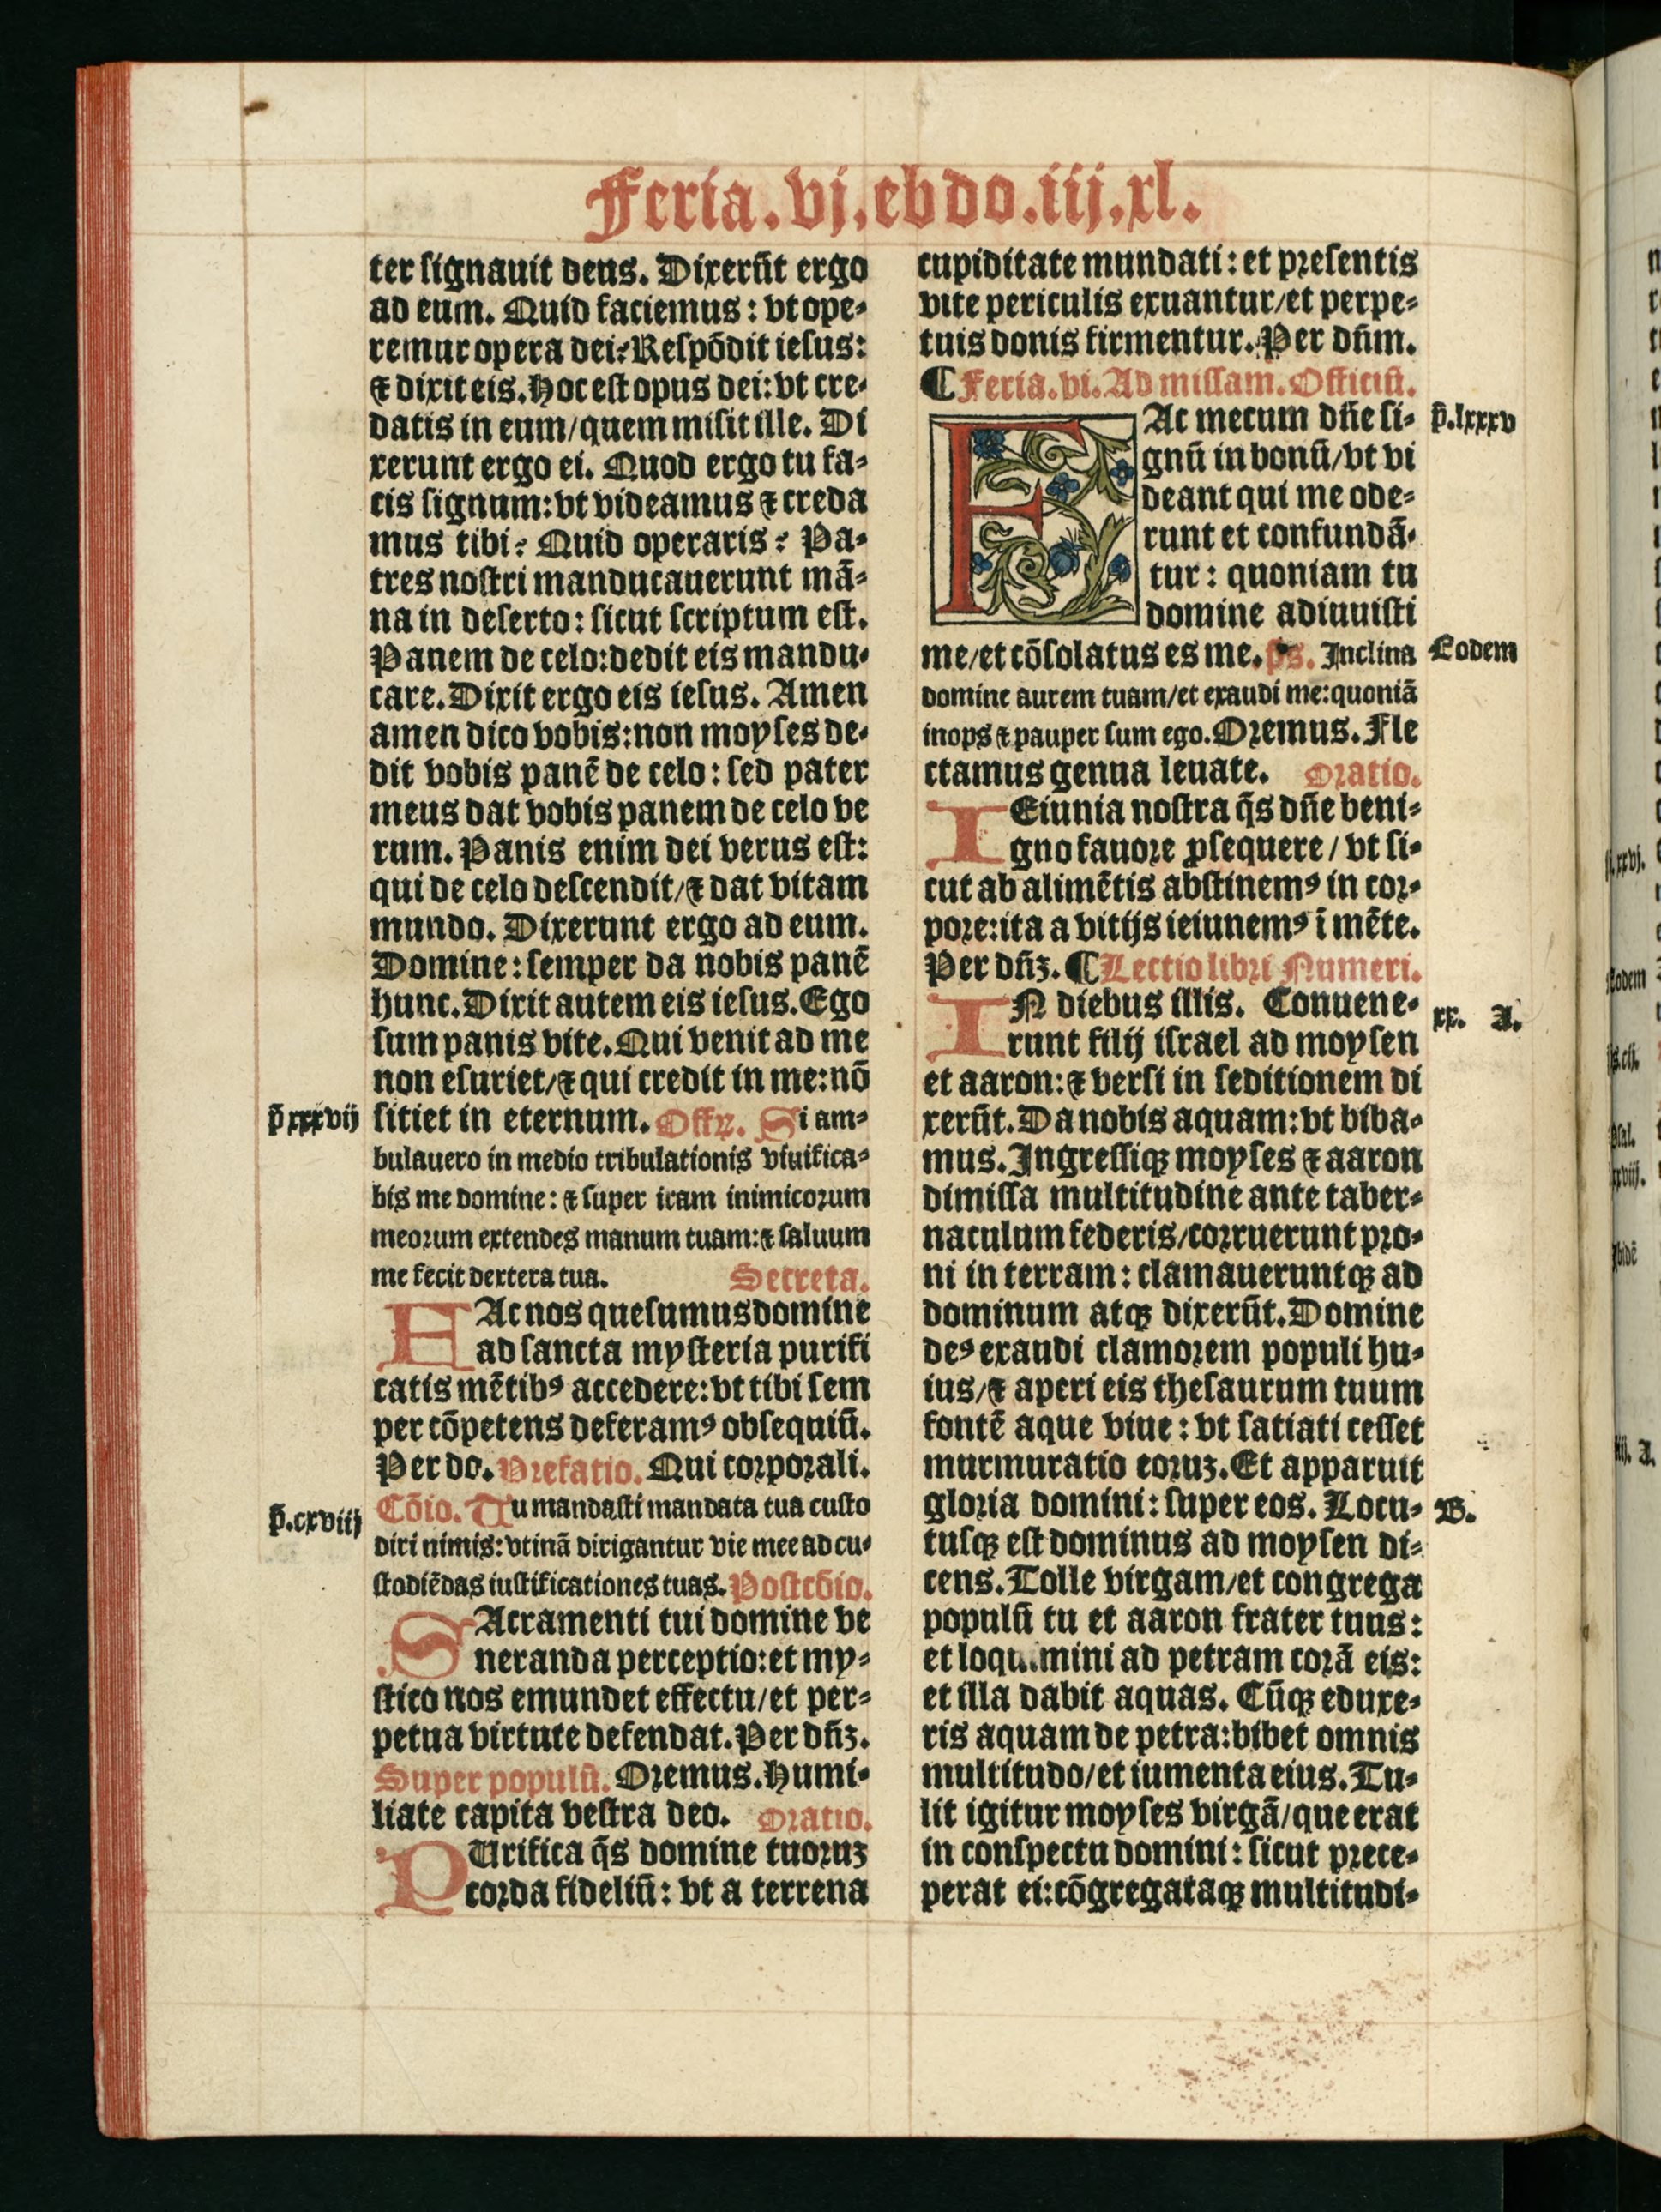 Feria.vj.ebdo.iij.xl.
ter signauit deus. Dixerūt ergo
ad eum. Quid faciemus: vt ope-
remur opera dei? Respōdit iesus:
⁊ dixit eis. Hoc est opus dei: vt cre-
datis in eum/quem misit ille. Di
xerunt ergo ei. Quod ergo tu fa-
cis signum: vt videamus ⁊ creda
mus tibi? Quid operaris? Pa-
tres nostri manducauerunt mā-
na in deserto: sicut scriptum est.
Panem de celo: dedit eis mandu-
care. Dixit ergo eis iesus. Amen
amen dico vobis: non moyses de-
dit vobis panē de celo: sed pater
meus dat vobis panem de celo ve
rum. Panis enim dei verus est:
qui de celo descendit/⁊ dat vitam
mundo. Dixerunt ergo ad eum.
Domine: semper da nobis panē
hunc. Dixit autem eis iesus. Ego
sum panis vite. Qui venit ad me
non esuriet/⁊ qui credit in me: nō
p̄ xxxvij sitiet in eternum. Offꝝ. Si am-
bulauero in medio tribulationis viuifica-
bis me domine: ⁊ super iram inimicorum
meorum extendes manum tuam: ⁊ saluum
me fecit dextera tua. Secreta.
FAc nos quesumus domine
ad sancta mysteria purifi
catis mētibꝰ accedere: vt tibi sem
per cōpetens deferamꝰ obsequiū.
Per do. Prefatio. Qui corporali.
p̄.cxviij Cōio. Tu mandasti mandata tua custo
diri nimis: vtinā dirigantur vie mee ad cu-
stodiēdas iustificationes tuas. Postcōio.
SAcramenti tui domine ve
neranda perceptio: et my-
stico nos emundet effectu/et per-
petua virtute defendat. Per dn̄ꝫ.
Super populū. Oremus. Humi-
liate capita vestra deo. Oratio.
PUrifica q̄s domine tuoruꝫ
corda fideliū: vt a terrena
cupiditate mundati: et presentis
vite periculis exuantur/et perpe-
tuis donis firmentur. Per dn̄m.
¶ Feria.vi. Ad missam. Officiū.
FAc mecum dn̄e si- p̄.lxxxv
gnū in bonū/vt vi
deant qui me ode-
runt et confundā-
tur: quoniam tu
domine adiuuisti
me/et cōsolatus es me. ps. Inclina Eodem
domine aurem tuam/et exaudi me: quoniā
inops ⁊ pauper sum ego. Oremus. Fle
ctamus genua leuate. Oratio.
IEiunia nostra q̄s dn̄e beni-
gno fauore ꝓsequere/ vt si-
cut ab alimētis abstinemꝰ in cor-
pore: ita a vitijs ieiunemꝰ ī mēte.
Per dn̄ꝫ. ¶ Lectio libri Numeri.
IN diebus illis. Conuene- xx. A.
runt filij israel ad moysen
et aaron: ⁊ versi in seditionem di
xerūt. Da nobis aquam: vt biba-
mus. Ingressiqꝫ moyses ⁊ aaron
dimissa multitudine ante taber-
naculum federis/corruerunt pro-
ni in terram: clamaueruntqꝫ ad
dominum atqꝫ dixerūt. Domine
deꝰ exaudi clamorem populi hu-
ius/⁊ aperi eis thesaurum tuum
fontē aque viue: vt satiati cesset
murmuratio eoruꝫ. Et apparuit
gloria domini: super eos. Locu- B.
tusqꝫ est dominus ad moysen di-
cens. Tolle virgam/et congrega
populū tu et aaron frater tuus:
et loquimini ad petram corā eis:
et illa dabit aquas. Cūqꝫ eduxe-
ris aquam de petra: bibet omnis
multitudo/et iumenta eius. Tu-
lit igitur moyses virgā/que erat
in conspectu domini: sicut prece-
perat ei: cōgregataqꝫ multitudi-